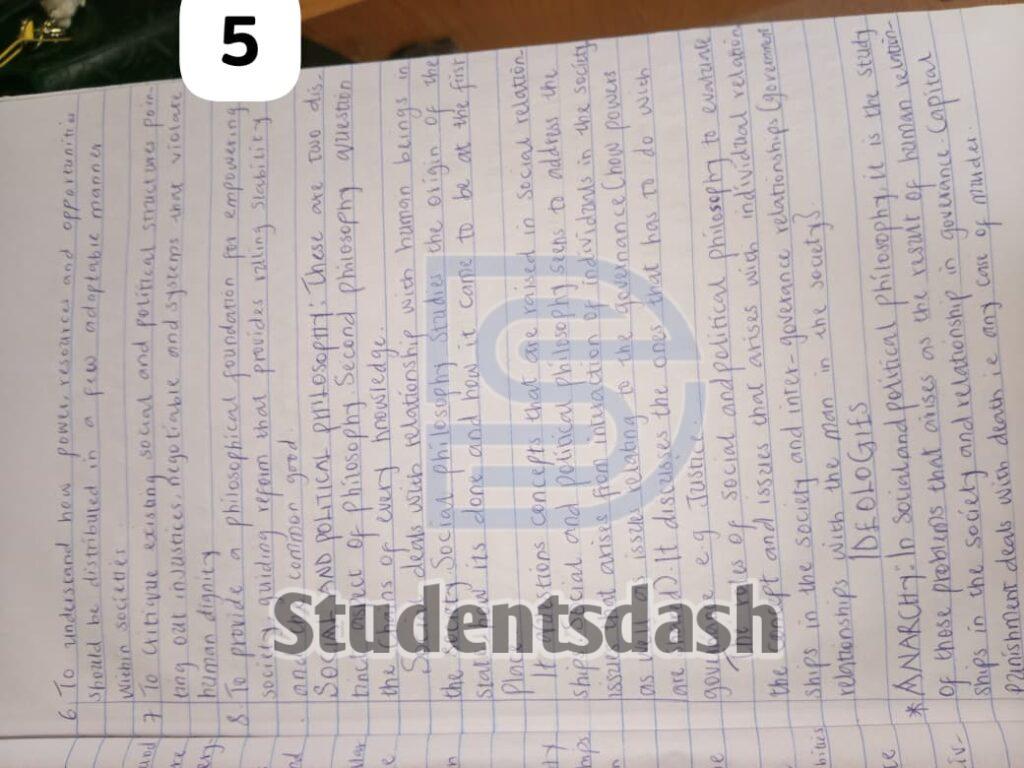 5
6. To understand how power, resources and opportunities
should be distributed in a few adoptable manner
within societies
7 To critique existing social and political structures poin-
ting out injustices, negotiable and systems that violate
human dignity
8. To provide a philosophical foundation for empowering
society guiding reform that provides ruling stability
and common good.
SOCIAL AND POLITICAL PHILOSOPHY: These are two dis-
tinct aspect of philosophy. Second philosophy question
the means of every knowledge.
deals with relationship with human beings in
the society Social philosophy studies the origin of the
state how its done and how it came to be at the first
place
It questions concepts that are raised in social relation-
ships social and political philosophy seens to address the
issues that arise from interaction of individuals in the society
as well as issues relating to the governance (how powers
are shared). It discusses the ones that has to do with
e.g Justice.
The of social and political philosophy to evaluate
the concept and issues that arises with individual relation
ships in the society and inter-governance relationships (government
relationships with the man in the society}.
IDEOLOGIES
* ANARCHY: In Social and political philosophy it is the study
of those problems that arises as the result of human relation-
ships in the society and relationship in governance. Capital
punishment deals with death ie any case of murder.
Studentsdash